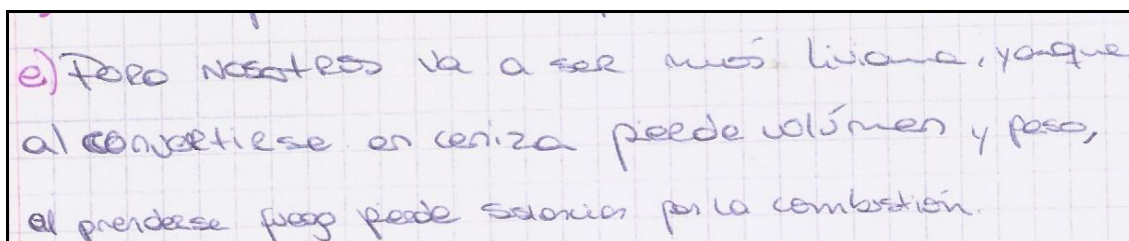 e) Para nosotros va a ser más liviana, ya que
al convertirse en ceniza pierde volúmen y peso,
al prenderse fuego pierde por la combustión.